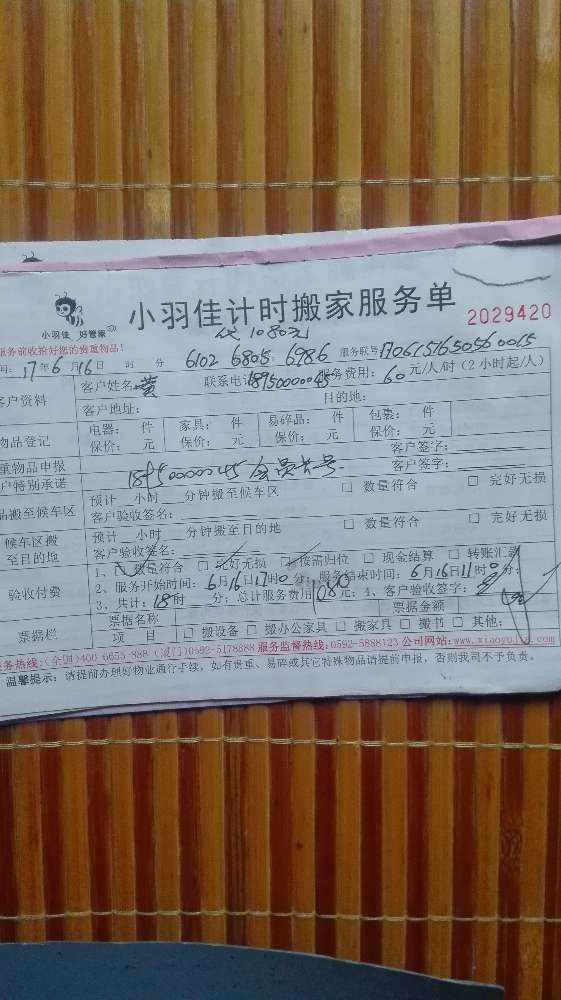 小羽佳 好管家
小羽佳计时搬家服务单
2029420
代1080元
服务前收拾好您的贵重物品!
间: 17年6月16日 时 分 6102 6805 6986 服务联号
客户资料 客户姓名: 黄 联系电话 18950000045 服务费用: 60元/人/时(2小时起/人)
客户地址: 目的地:
物品登记 电器: 件 家具: 件 易碎品: 件 包裹: 件
保价: 元 保价: 元 保价: 元 保价: 元
重物品申报 客户签字:
户特别承诺 18950000045 会员卡号 客户签字:
品搬至候车区 预计 小时 分钟搬至候车区 □ 数量符合 □ 完好无损
客户验收签名:
候车区搬至目的地 预计 小时 分钟搬至目的地 □ 数量符合 □ 完好无损
客户验收签名:
验收付费 1、□ 数量符合 □ 完好无损 □ 按需归位 □ 现金结算 □ 转账汇款
2、服务开始时间: 6月16日17时0分; 服务结束时间: 6月16日11时0分;
3、共计: 18时 分; 总计服务费用1080元; 4、客户验收签字:
票据栏 票据名称 票据金额
项 目 □ 搬设备 □ 搬办公家具 □ 搬家具 □ 搬书 □ 其他:
务热线: (全国)400-6655-988 (厦门)0592-5178888 服务监督热线: 0592-5888123 公司网站:
温馨提示: 请提前办理好物业通行手续, 如有贵重、易碎或其它特殊物品请提前申报, 否则我司不予负责。